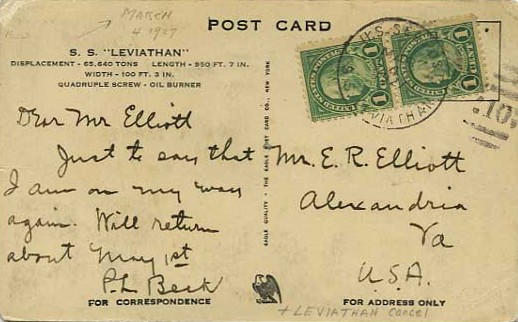 MARCH
4 1927
POST CARD
S. S. "LEVIATHAN"
DISPLACEMENT - 65,640 TONS LENGTH - 950 FT. 7 IN.
WIDTH - 100 FT. 3 IN.
QUADRUPLE SCREW - OIL BURNER
Dear Mr Elliott
Just to say that
I am on my way
again. Will return
about May 1st
P.L. Beck
FOR CORRESPONDENCE
EAGLE QUALITY - THE EAGLE POST CARD CO., NEW YORK
1 1
1 1
LEVIATHAN
10
Mr. E. R. Elliott
Alexandria
Va
U.S.A.
FOR ADDRESS ONLY
+ LEVIATHAN cancel